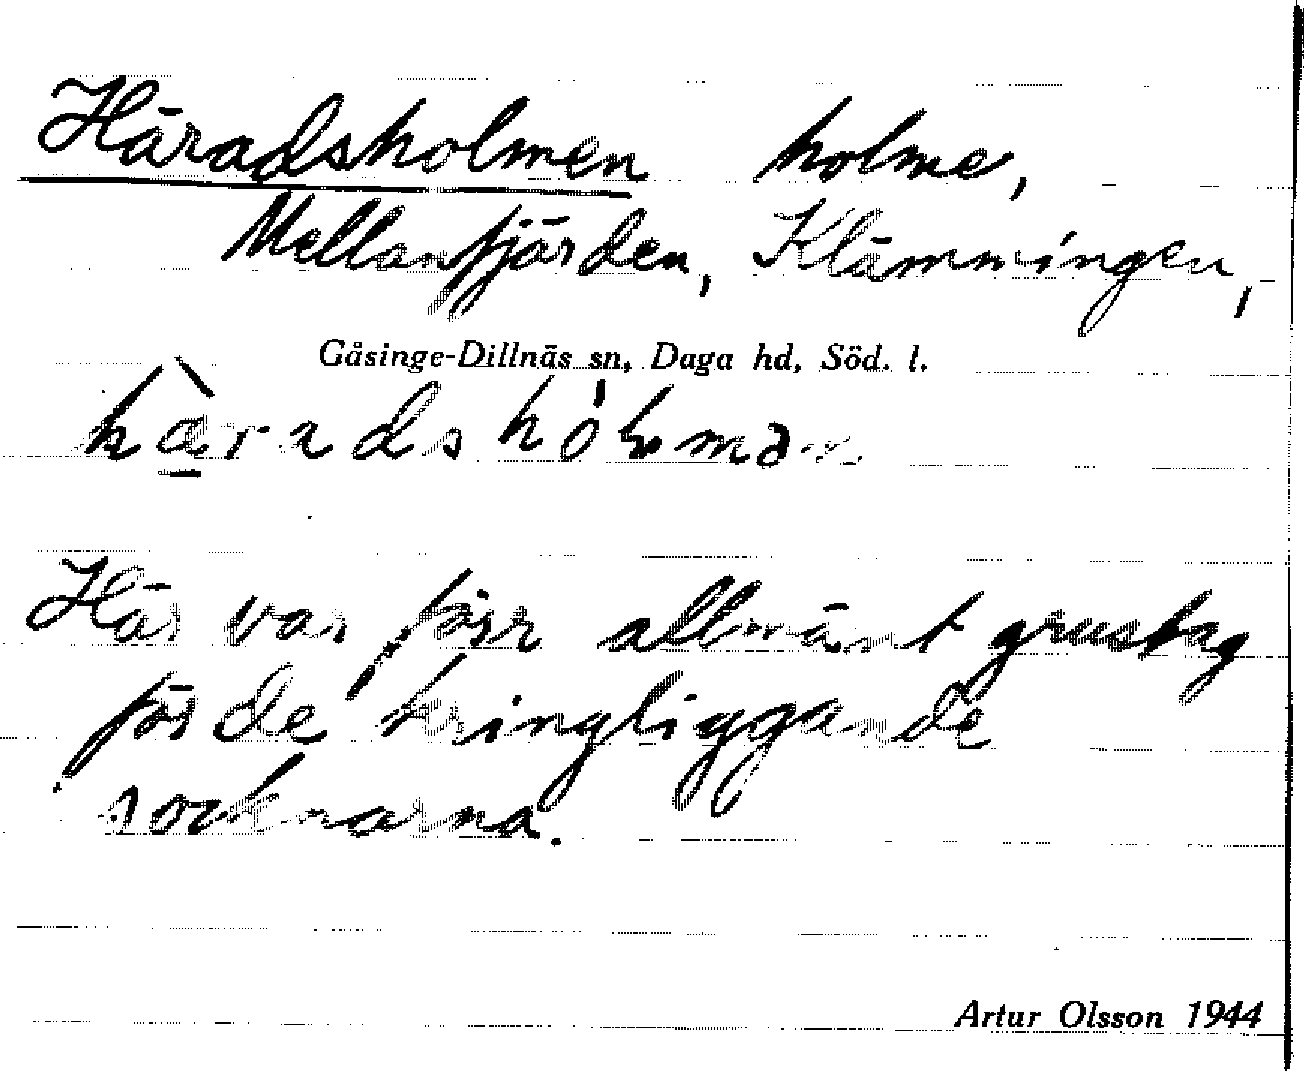 Häradsholmen holme,
Mellanfjärden, Klämmingen,
Gåsinge-Dillnäs sn, Daga hd, Söd. l.
Här var förr allmänt grustag
för de kringliggande
socknarna.
Artur Olsson 1944